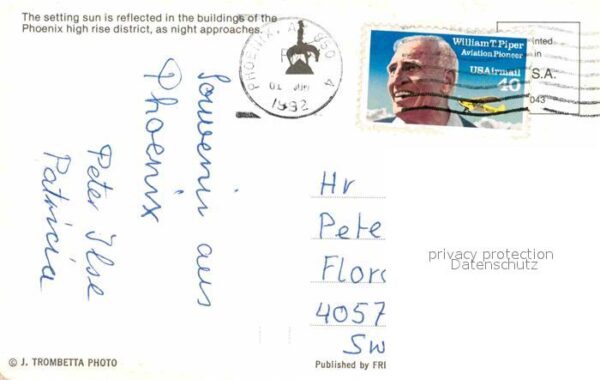 The setting sun is reflected in the buildings of the
Phoenix high rise district, as night approaches.
PHOENIX, A 850
P
01 JUN
1992
4
William T. Piper
Aviation Pioneer
USAirmail
40
inted
in
S.A.
043
Souvenir aus
Phoenix
Peter Ilse
Patricia
Hr
Pete
Flor
4057
Sw
privacy protection
Datenschutz
© J. TROMBETTA PHOTO
Published by FRI